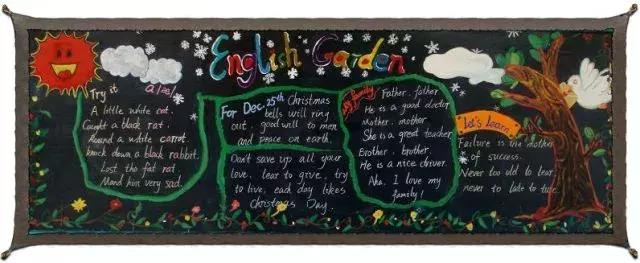 English Garden
Try it
a / æ /
A little white cat.
Caught a black rat.
Round a white carrot
knock down a black rabbit.
Lost the fat rat
Mand him very sad.
For Dec. 25th Christmas
bells will ring
out, good will to men
and peace on earth.
Don't save up all your
love, lear to give, try
to live, each day likes
Christmas Day.
My family
Father, father
He is a good doctor
Mother, mother
She is a great teacher
Brother, brother.
He is a nice driver.
Aha, I love my
family!
Let's Learn
Failure is the mother
of success.
Never too old to lear
never to late to